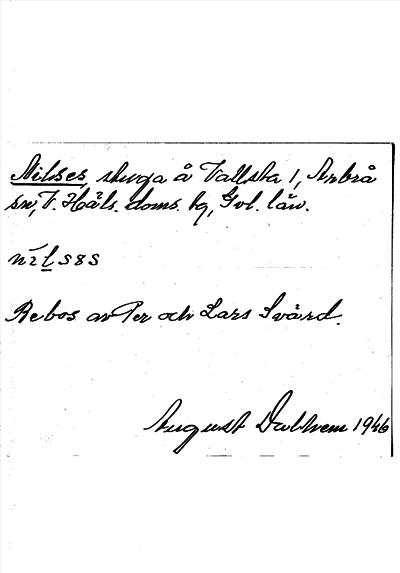 Nilses, stuga å Vallsta 1, Arbrå
sn, V. Häls. doms. hg, Gvl. län.
nɪls​ɜs
Bebos av Per och Lars Svärd.
August Dahlrem 1946